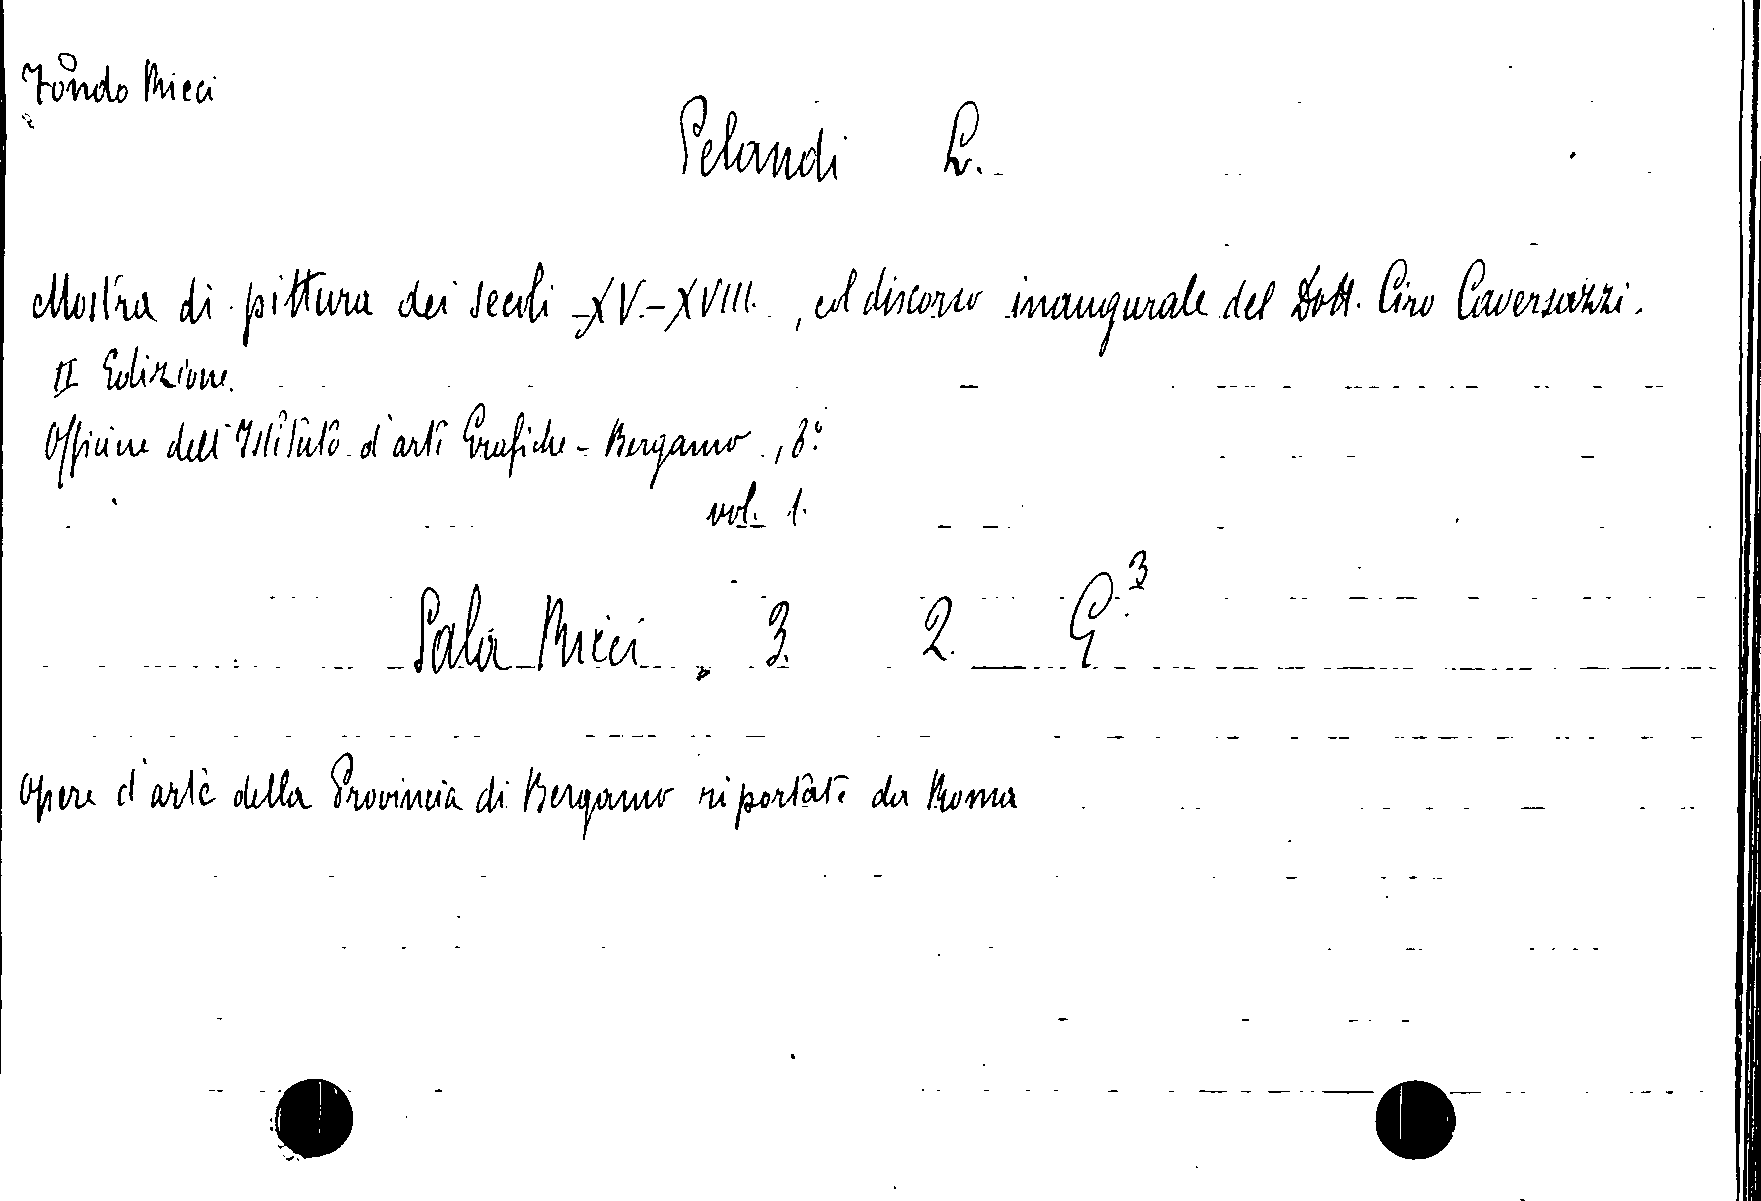 Fondo Ricci
Pelandi L.
Mostra di pittura dei secoli XV.-XVIII., col discorso inaugurale del Dott. Ciro Caversazzi.
II Edizione.
Officine dell'Istituto d'arti Grafiche - Bergamo, 8°
vol. 1.
Sala Ricci. 3. 2. G.³
Opere d'arte della Provincia di Bergamo riportate da Roma